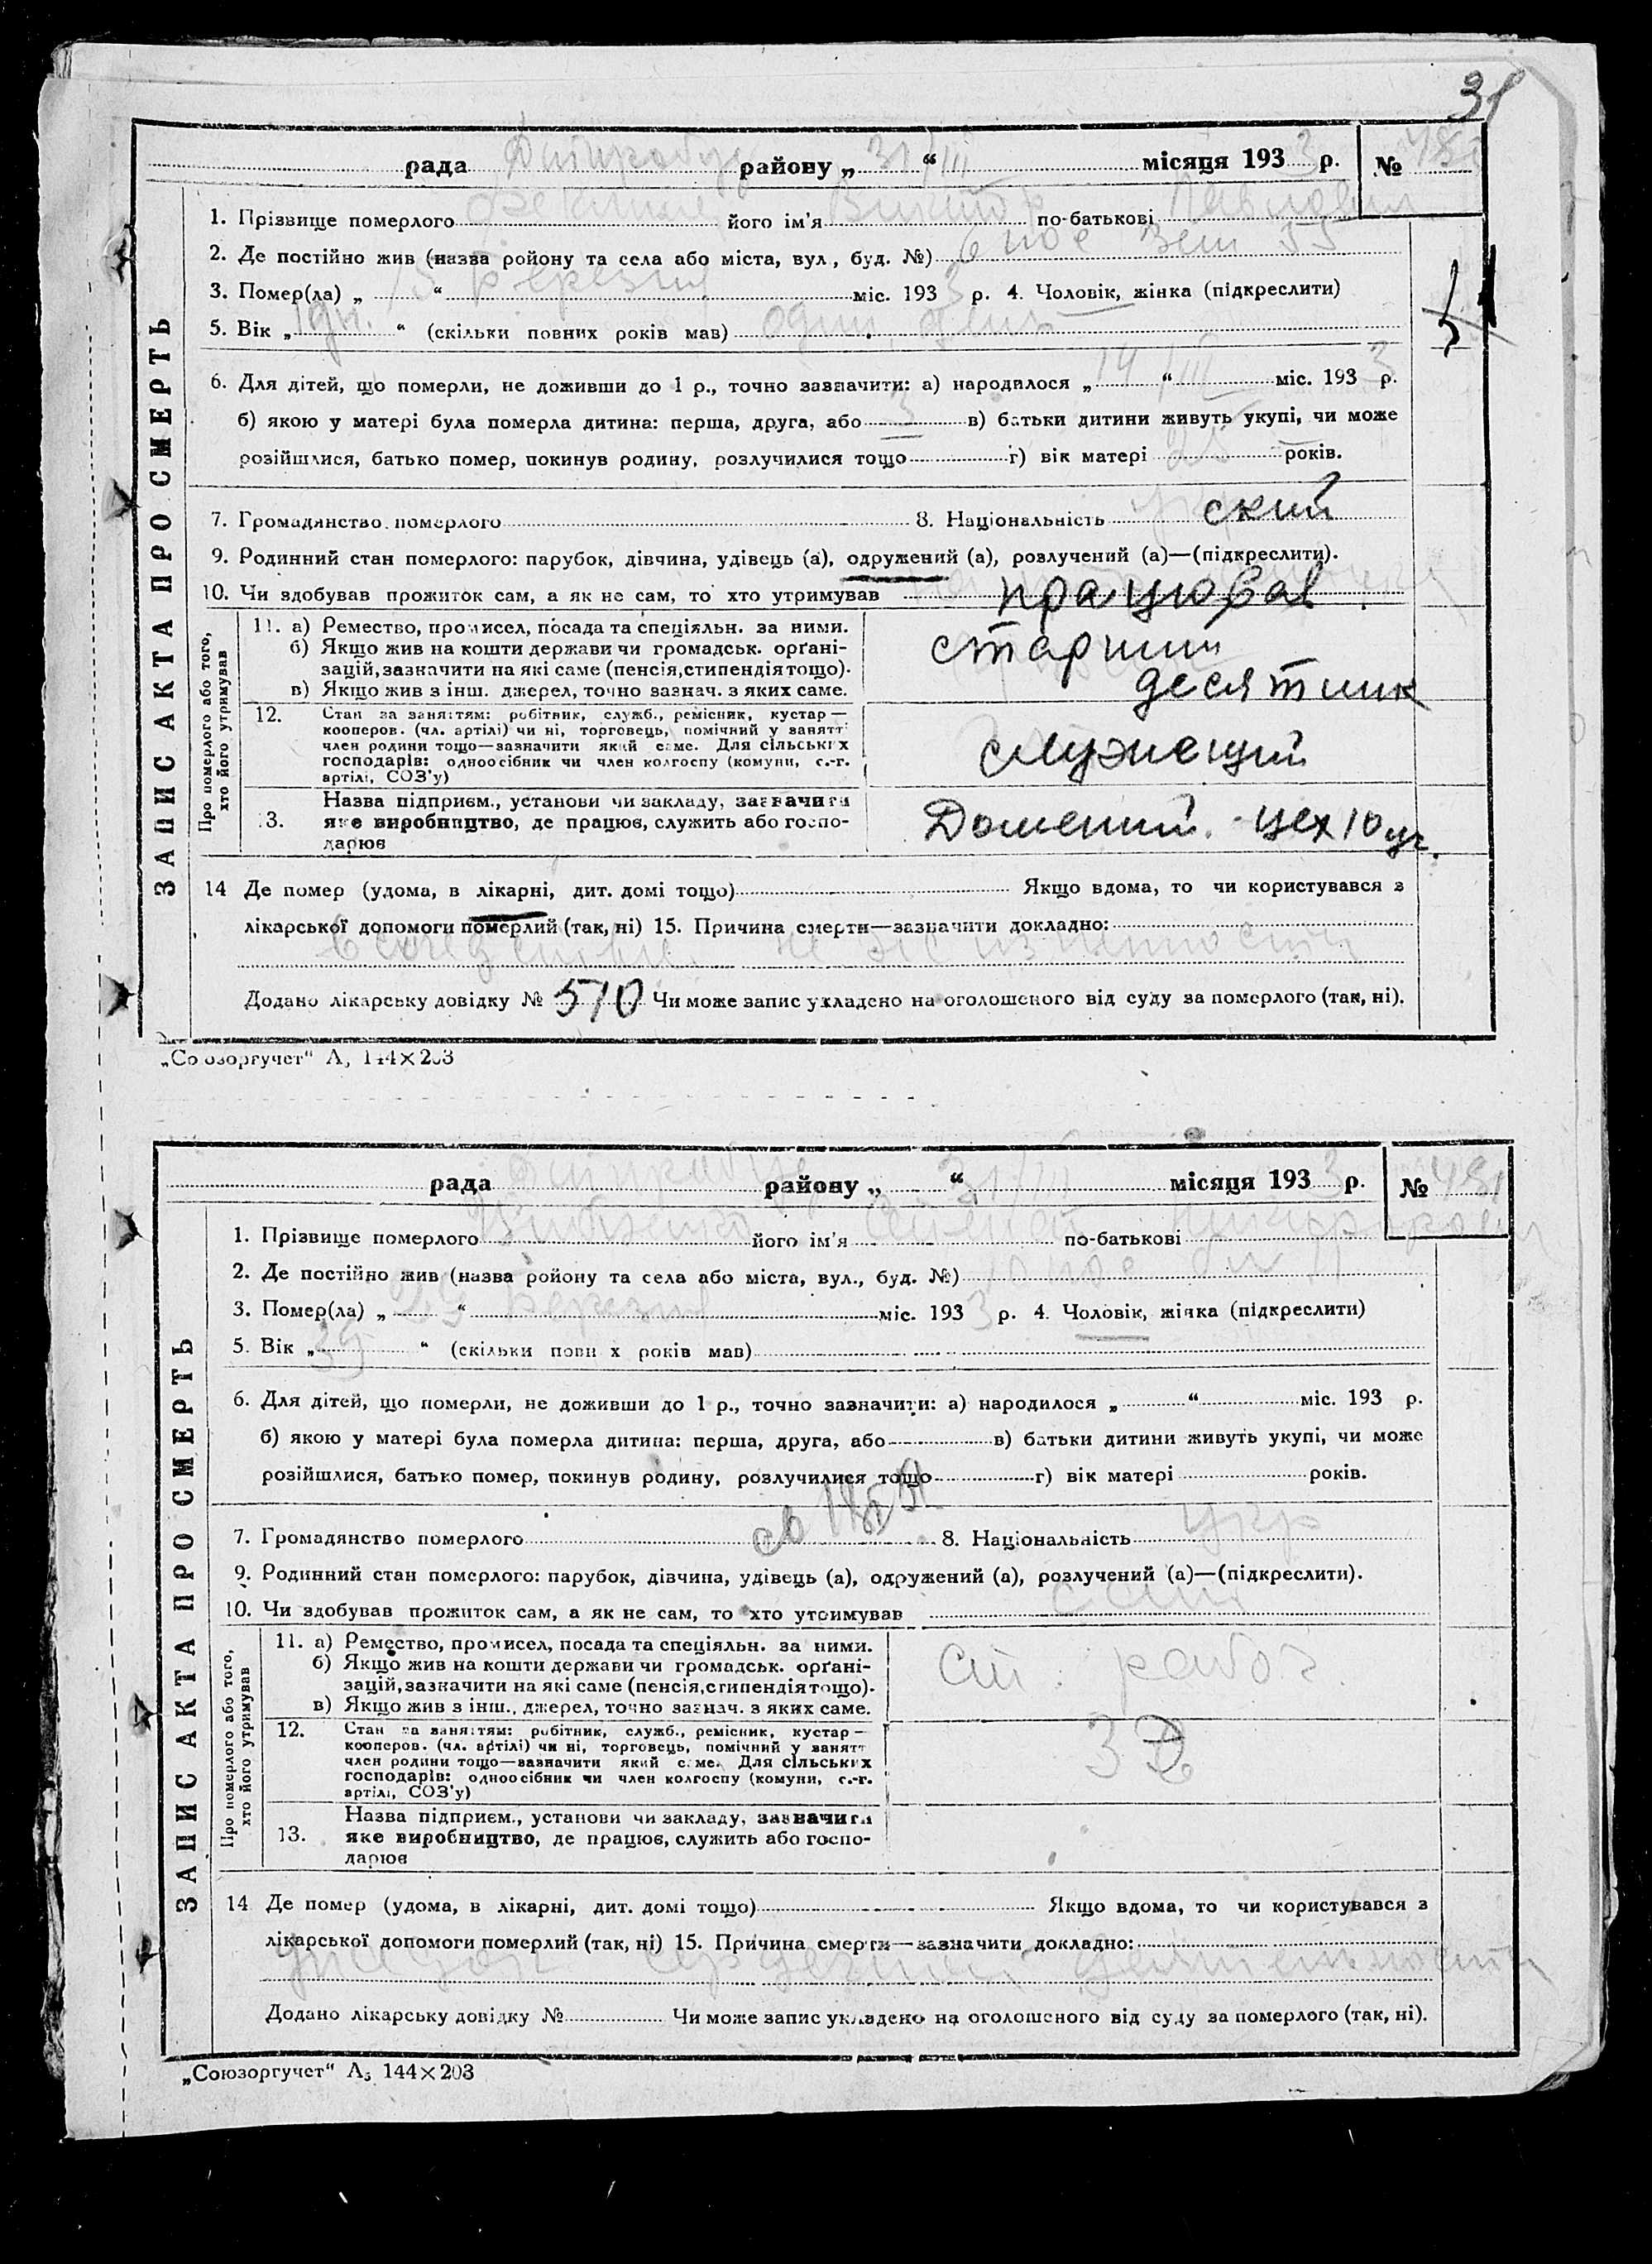 31
рада району „ 31/III “ місяця 193 3 р. №
1. Прізвище померлого його ім'я Виктор по-батькові Павлович
2. Де постійно жив (назва ройону та села або міста, вул, буд. №) 6 пос Зем 55
3. Помер(ла) „ 15 “ березня міс. 193 3 р. 4. Чоловік, жінка (підкреслити)
5. Вік „ 1 дн. “ (скільки повних років мав) один день
6. Для дітей, що померли, не доживши до 1 р., точно зазначити: а) народилося „ 14 “ III міс. 193 3 р.
б) якою у матері була померла дитина: перша, друга, або 3 в) батьки дитини живуть укупі, чи може
розійшлися, батько помер, покинув родину, розлучилися тощо г) вік матері років.
7. Громадянство померлого 8. Національність укр ский
9. Родинний стан померлого: парубок, дівчина, удівець (а), одружений (а), розлучений (а)—(підкреслити).
10. Чи здобував прожиток сам, а як не сам, то хто утримував працював
ЗАПИС АКТА ПРО СМЕРТЬ
Про померлого або того, хто його утримував
11. а) Ремество, промисел, посада та спеціяльн. за ними. старший
б) Якщо жив на кошти держави чи громадськ. орґані-
зацій, зазначити на які саме (пенсія, стипендія тощо). десятник
в) Якщо жив з інш. джерел, точно зазнач. з яких саме.
12. Стан за заняттям: робітник, служб., ремісник, кустар—
кооперов. (чл. артілі) чи ні, торговець, помічний у занятт
член родини тощо—зазначити який саме. Для сільських служещий
господарів: одноосібник чи член колгоспу (комуни, с.-г.
артілі, СОЗ'у)
Назва підприєм., установи чи закладу, зазначити
13. яке виробництво, де працює, служить або госпо- Доменний цех 10 уч.
дарює
14 Де помер (удома, в лікарні, дит. домі тощо) Якщо вдома, то чи користувався з
лікарської допомоги померлий (так, ні) 15. Причина смерти—зазначити докладно:
не жизненности
Додано лікарську довідку № 570 Чи може запис укладено на оголошеного від суду за померлого (так, ні).
„Союзоргучет“ А₅ 144×203
рада району „ 31/III “ місяця 193 3 р. № 481
1. Прізвище померлого його ім'я по-батькові
2. Де постійно жив (назва ройону та села або міста, вул., буд. №) 10 пос 11
3. Помер(ла) „ 29 “ березня міс. 193 3 р. 4. Чоловік, жінка (підкреслити)
5. Вік „ 35 “ (скільки повн х років мав)
6. Для дітей, що померли, не доживши до 1 р., точно зазначити: а) народилося „ “ міс. 193 р.
б) якою у матері була померла дитина: перша, друга, або в) батьки дитини живуть укупі, чи може
розійшлися, батько помер, покинув родину, розлучилися тощо г) вік матері років.
7. Громадянство померлого 8. Національність укр
9. Родинний стан померлого: парубок, дівчина, удівець (а), одружений (а), розлучений (а)—(підкреслити).
10. Чи здобував прожиток сам, а як не сам, то хто утримував сам
ЗАПИС АКТА ПРО СМЕРТЬ
Про померлого або того, хто його утримував
11. а) Ремество, промисел, посада та спеціяльн. за ними.
б) Якщо жив на кошти держави чи громадськ. орґані- ст. рабоч.
зацій, зазначити на які саме (пенсія, стипендія тощо).
в) Якщо жив з інш. джерел, точно зазнач. з яких саме.
12. Стан за заняттям: робітник, служб., ремісник, кустар—
кооперов. (чл. артілі) чи ні, торговець, помічний у занятт
член родини тощо—зазначити який саме. Для сільських
господарів: одноосібник чи член колгоспу (комуни, с.-г.
артілі, СОЗ'у)
Назва підприєм., установи чи закладу, зазначити
13. яке виробництво, де працює, служить або госпо-
дарює
14 Де помер (удома, в лікарні, дит. домі тощо) Якщо вдома, то чи користувався з
лікарської допомоги померлий (так, ні) 15. Причина смерти—зазначити докладно:
упадок сердечной деятельности
Додано лікарську довідку № Чи може запис укладено на оголошеного від суду за померлого (так, ні).
„Союзоргучет“ А₅ 144×203